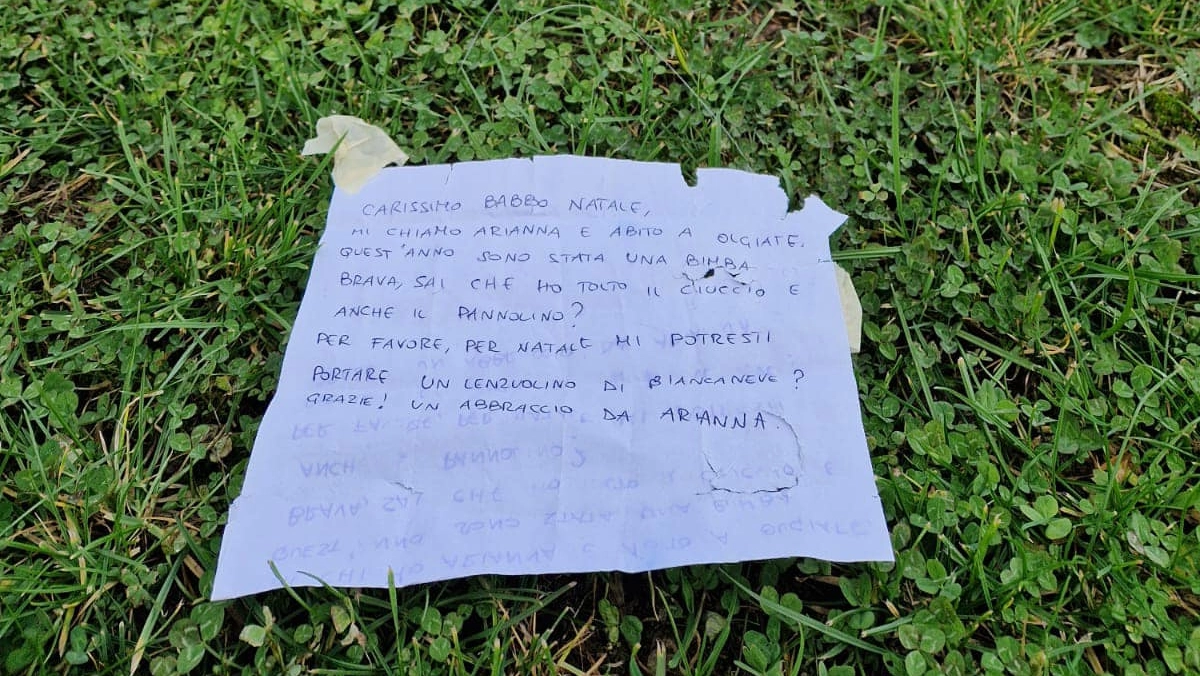 CARISSIMO BABBO NATALE,
MI CHIAMO ARIANNA E ABITO A OLGIATE.
QUEST'ANNO SONO STATA UNA BIMBA
BRAVA, SAI CHE HO TOLTO IL CIUCCIO E
ANCHE IL PANNOLINO?
PER FAVORE, PER NATALE MI POTRESTI
PORTARE UN LENZUOLINO DI BIANCANEVE?
GRAZIE! UN ABBRACCIO DA ARIANNA.